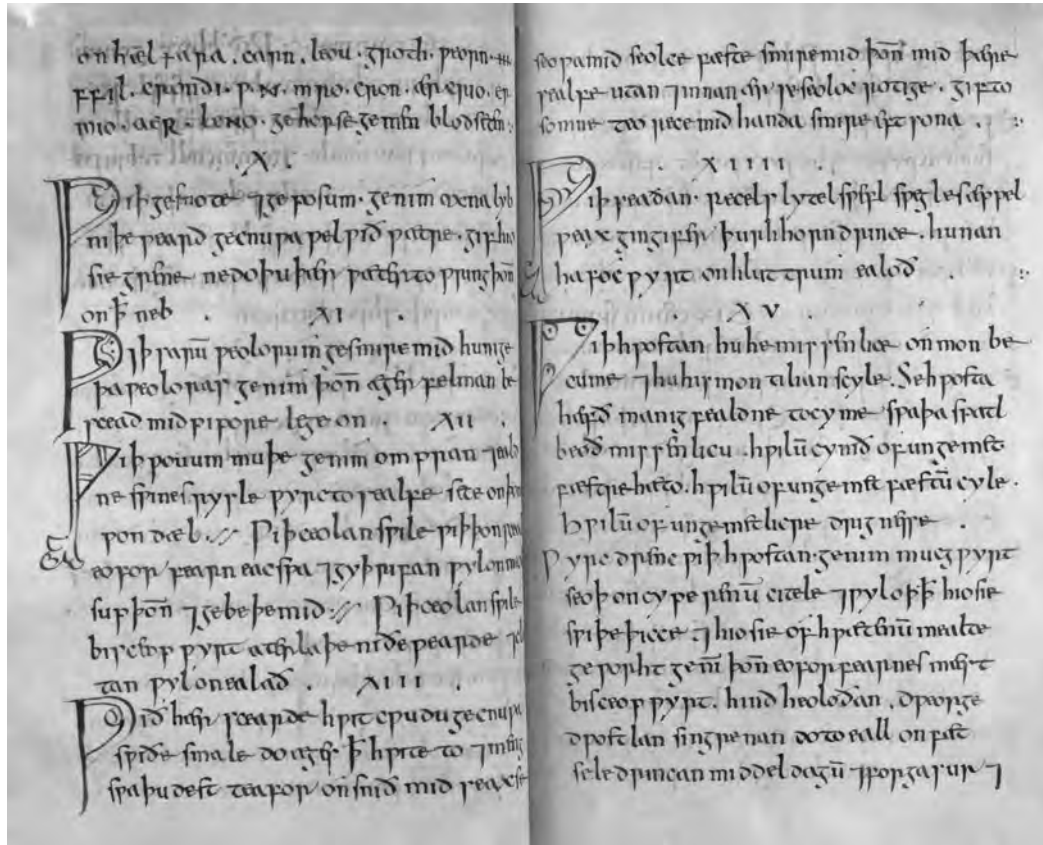 onhæl ꝼara . carn . leou . groth . ƿeorn .
ffil . crondi . ƿ . X . mro . cron . ærcrio . er
mio . AER . LENO . ge horse ge men blodseten :
. X .
Ƿiþ gesnote ⁊ geposum . genim oxnalyb
niþeƿeard gecnuƿa ƿel ƿið ƿætre . gif hio
sie grene ne do þu þær ƿæter to ƿring þoñ
on ꝥ neb . XI .
Ƿiþ sarū ƿeolorum gesmire mid hunige
þa ƿeoloras genim þoñ æger felman be
scead mid pipore lege on . XII .
Ƿiþ ƿoum muþe genim ompran ⁊ eald
ne sƿines rysle ƿyrc to sealfe sete on þon
ƿon dæl . Ƿiþ ceolan sƿile ƿiþ þon
eoforfearn eac sƿa ⁊ gyþrifan ƿyl on
sup þoñ ⁊ gebeþe mid . Ƿiþ ceolan sƿile
bisceop ƿyrt atterlaþe niðe ƿearde ⁊ cl
tan ƿyl on ealað . XIII .
Ƿið hær sceardе hƿit cƿudu gecnuƿa
sƿiðe smale do æges ꝥ hƿite to ⁊ meng
sƿa þu dest teafor onsnið mid seaxe se
seoƿa mid seolce fæste smire mid þoñ mid þære
sealfe utan ⁊ innan ær se seoloc rotige . gif to
somne teo rece mid handa smire eft sona . :
. XIIII .
Ƿiþ þeadan . recels lytel sƿefl sƿeglesæppel
ƿeax gingifer þurh horn drince . hunan
hafocƿyrt on hluttrum ealoð . :
XV
Ƿiþ hƿostan hu he missenlice on mon be
cume ⁊ hu his mon tilian scyle . Se hƿosta
hæfð manigfealdne tocyme sƿa þa spatl
beoð missenlicu . hƿilū cymð of ungemet
fæstre hæto . hƿilū of ungemet fæstū cyle .
hƿilū of ungemetlicre drignesse .
Ƿyrc drenc ƿiþ hƿostan . genim mucgƿyrt
seoþ on cyperenū citele ⁊ ƿyl oþꝥ hio sie
sƿiþe þicce . ⁊ hio sie of hƿætenū mealte
geƿorht gem̄ þoñ eoforfearnes mæst
bisceopƿyrt . hindheoloðan . dƿeorge
dƿostlan singrenan do to eall on fæt
sele drincan middeldagū ⁊ forga sur ⁊